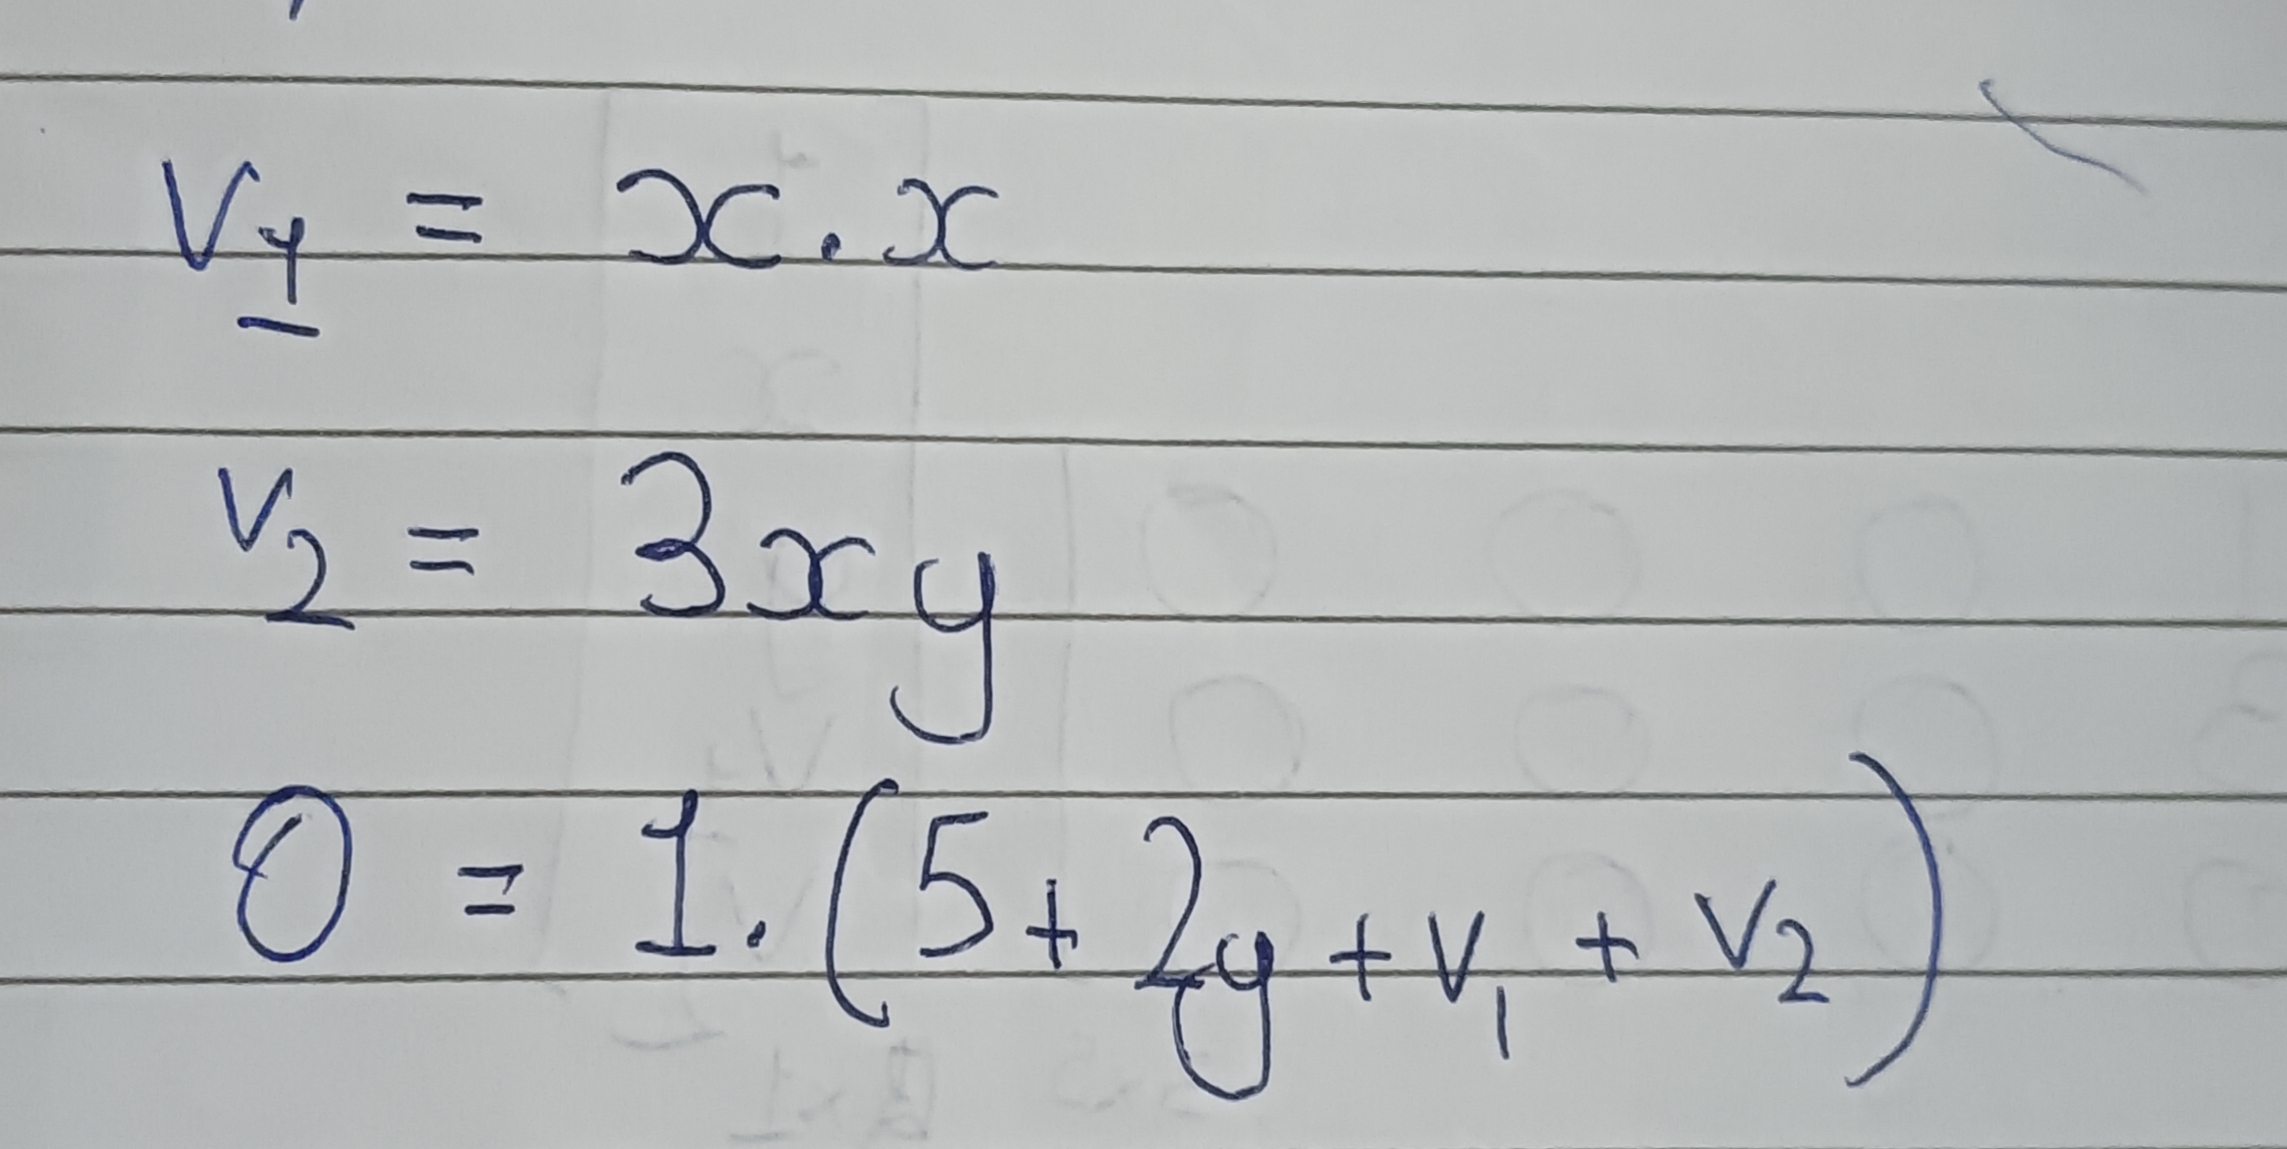 V₁ = x . x
V₂ = 3xy
0 = 1 . (5 + 2y + V₁ + V₂)